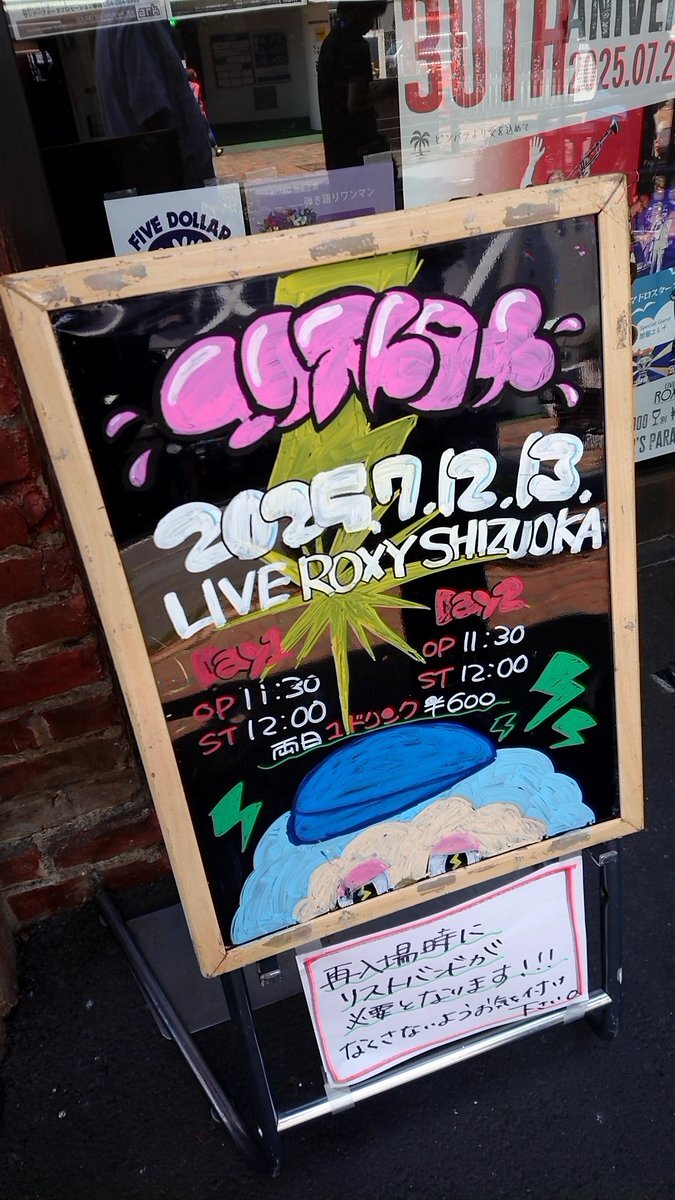 30TH ANNIVER
2025.07.2
ビンパラより愛を込めて
弾き語りワンマン
FIVE DOLLAR
マドロスター
Special Guest
2025.7.12.13.
LIVE ROXY SHIZUOKA
Day1
OP 11:30
ST 12:00
Day2
OP 11:30
ST 12:00
両日 1ドリンク ¥600
再入場時に
リストバンドが
必要となります!!!
なくさないようお気を付け
下さい。